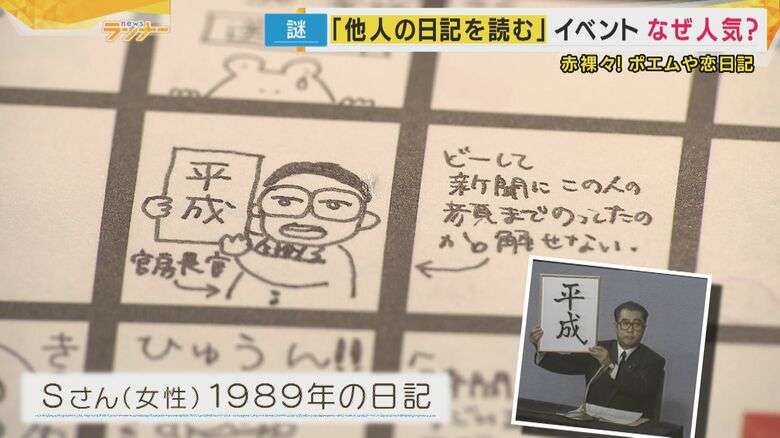 news
ランナー
謎
「他人の日記を読む」イベント なぜ人気?
赤裸々! ポエムや恋日記
平
成
官房長官
どーして
新聞に この人の
顔までのっしたの
か 解せない.
平成
ひゅうん!!
き
Sさん(女性)1989年の日記